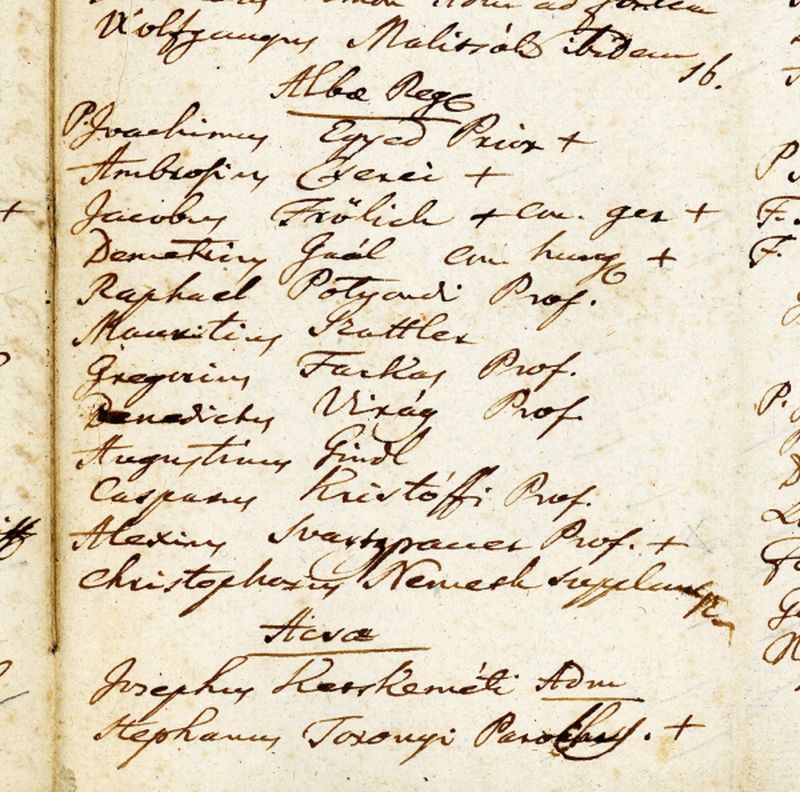 Wolfgangus Malissák ibidem
16.
Albæ Reg
P. Joachimus Egyed Prior +
Ambrosius Cserei +
Jacobus Frölich + con. ger +
Demetrius Gaál con hung +
Raphael Potyondi Prof.
Mauritius Szattler
Gregorius Farkas Prof.
Benedictus Virág Prof.
Augustinus Gindl
Casparus Kristóffi Prof.
Alexius Svartzpauer Prof. +
Christophorus Nemeth supplens
Acsæ
Josephus Kecskeméti Adm
Stephanus Toronyi Parochus. +